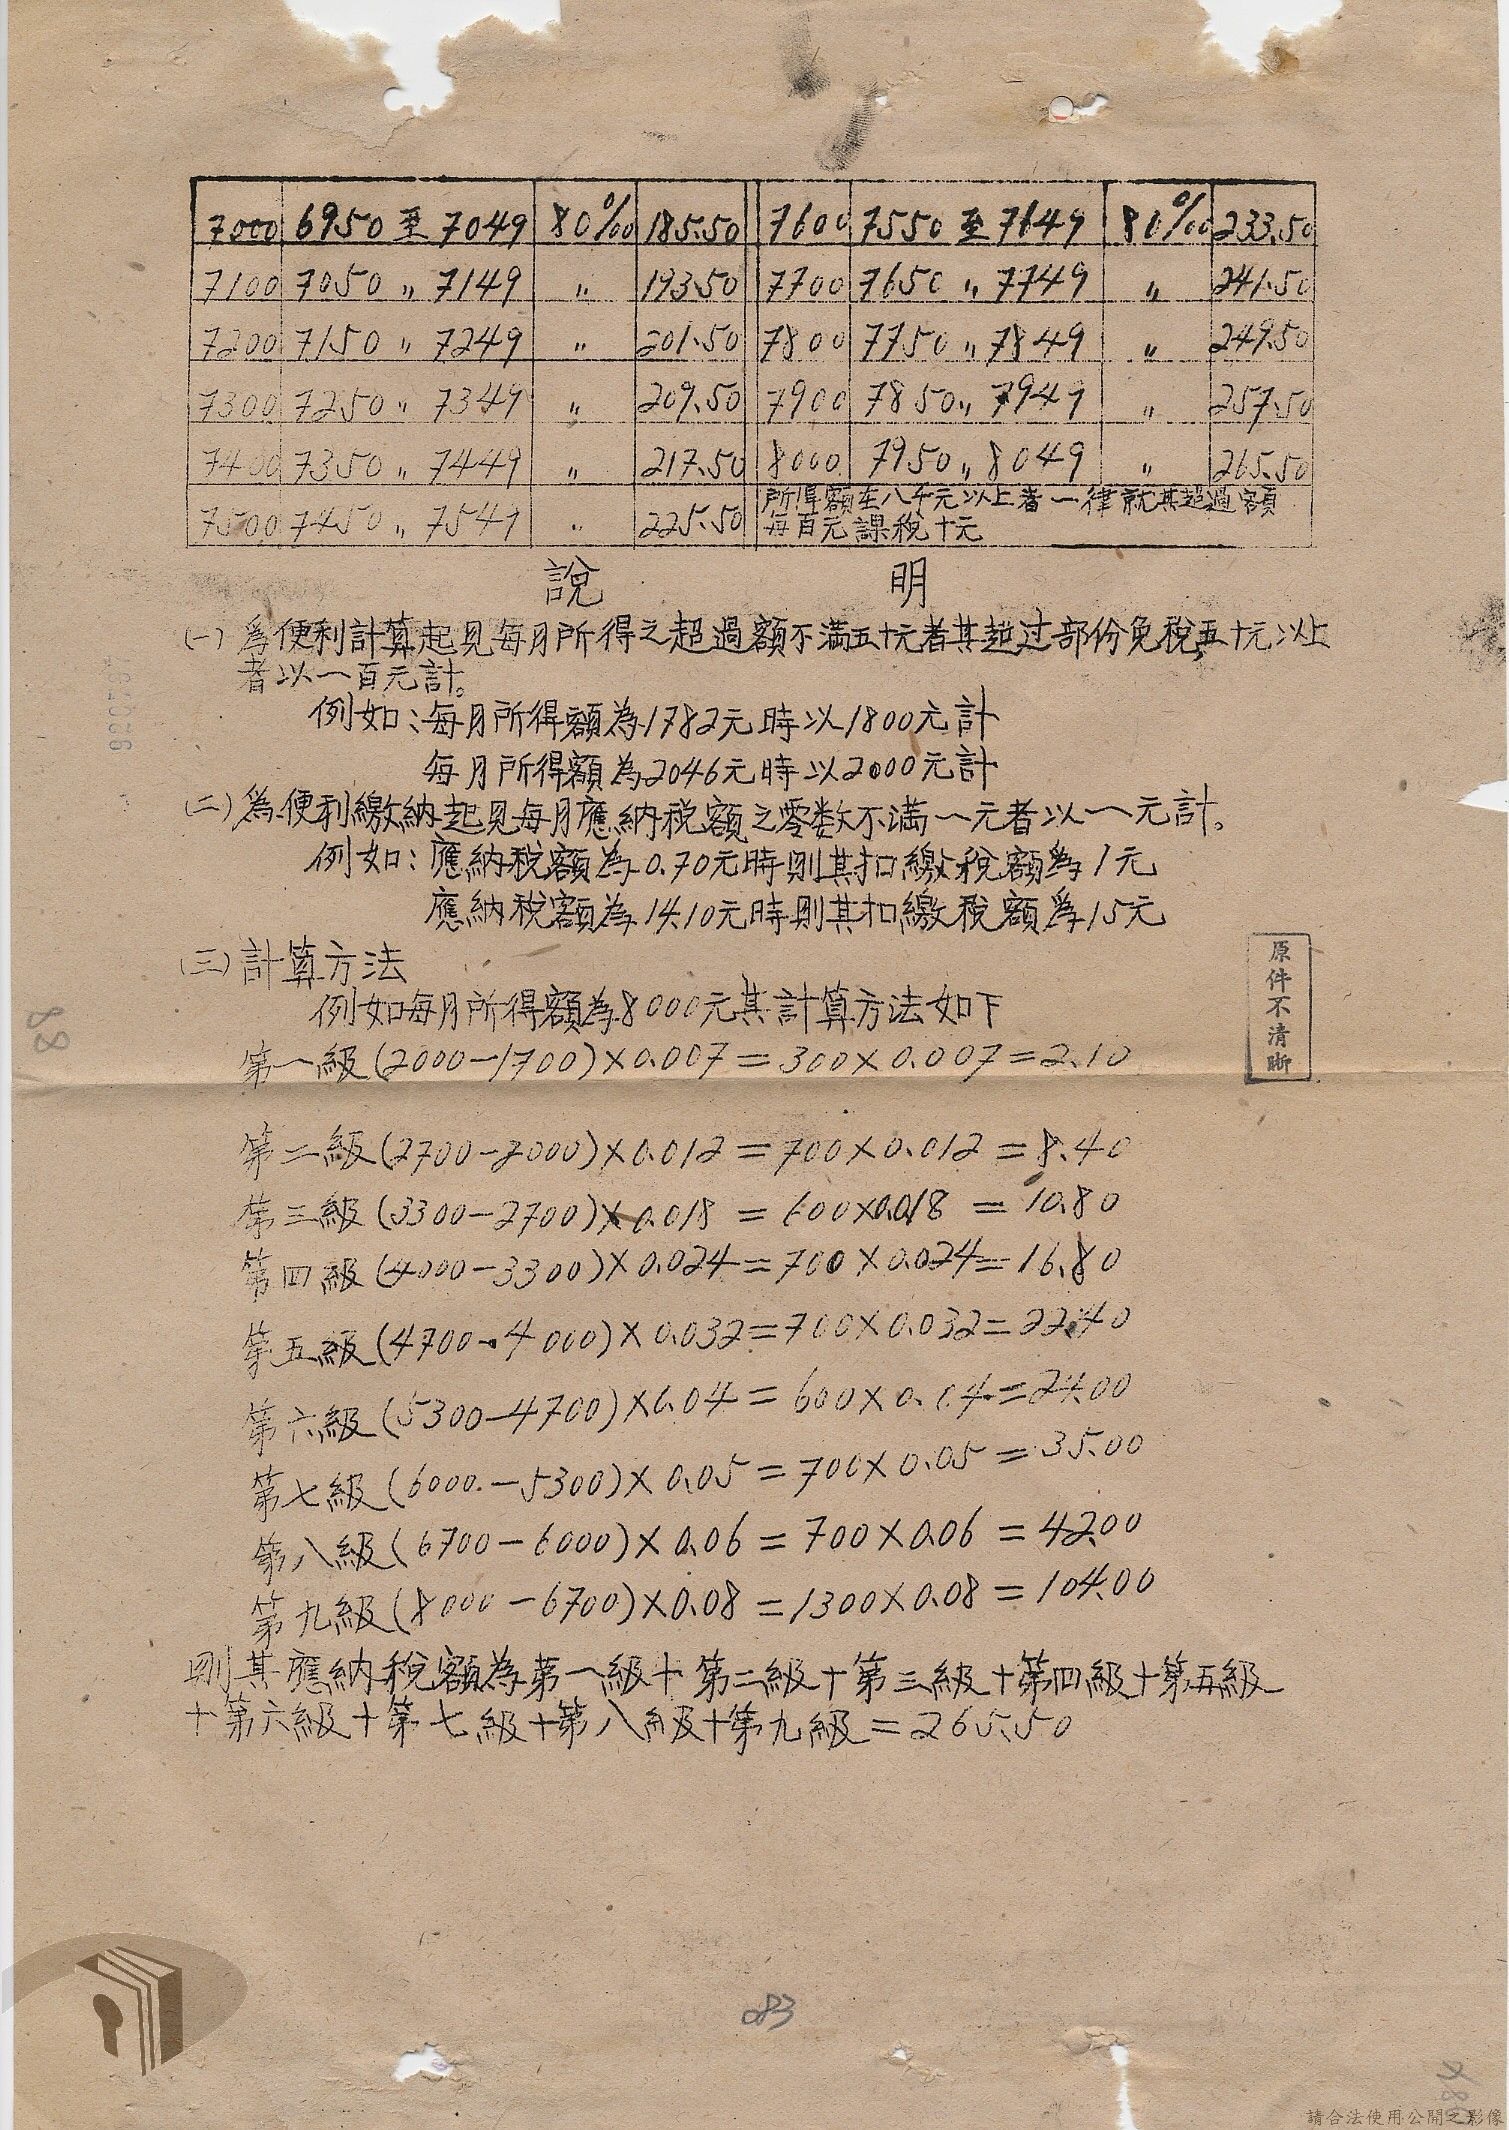 7000 6950至7049 80‰ 185.50 7600 7550至7649 80‰ 233.50
7100 7050〃7149 〃 193.50 7700 7650〃7749 〃 241.50
7200 7150〃7249 〃 201.50 7800 7750〃7849 〃 249.50
7300 7250〃7349 〃 209.50 7900 7850〃7949 〃 257.50
7400 7350〃7449 〃 217.50 8000 7950〃8049 〃 265.50
7500 7450〃7549 〃 225.50 所得額在八千元以上者一律就其超過額
每百元課稅十元
說 明
(一)為便利計算起見每月所得之超過額不滿五十元者其超过部份免稅五十元以上
者以一百元計。
例如:每月所得額為1782元時以1800元計
每月所得額為2046元時以2000元計
(二)為便利繳納起見每月應納稅額之零数不滿一元者以一元計。
例如:應納稅額為0.70元時則其扣繳稅額為1元
應納稅額為14.10元時則其扣繳稅額為15元
(三)計算方法
例如每月所得額為8000元其計算方法如下
第一級(2000-1700)×0.007=300×0.007=2.10
第二級(2700-2000)×0.012=700×0.012=8.40
第三級(3300-2700)×0.018=600×0.018=10.80
第四級(4000-3300)×0.024=700×0.024=16.80
第五級(4700-4000)×0.032=700×0.032=22.40
第六級(5300-4700)×0.04=600×0.04=24.00
第七級(6000-5300)×0.05=700×0.05=35.00
第八級(6700-6000)×0.06=700×0.06=42.00
第九級(8000-6700)×0.08=1300×0.08=104.00
則其應納稅額為第一級+第二級+第三級+第四級+第五級
+第六級+第七級+第八級+第九級=265.50
原件不清晰
88
083
請合法使用公開之影像